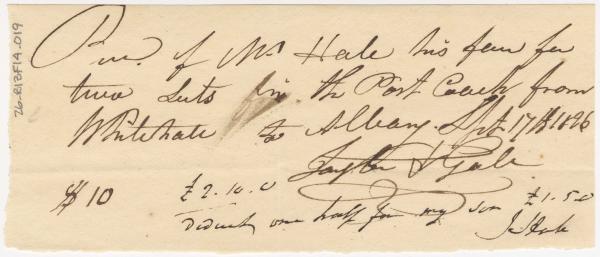 26-R12F19.019
Recd. of Mr Hale his fare for
two Seats in the Post Coach from
Whitehall to Albany Sept 17th 1826
$10 £2.10.0 £1.5.0
Deduct one half for my son
J. Hale